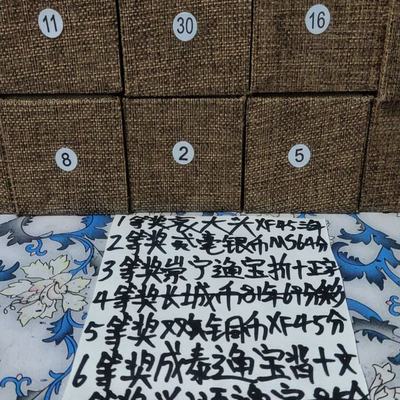 11 30 16
8 2 5
1等奖袁大头XF45三年
2等奖贰毫银币MS64分
3等奖崇宁通宝折十
4等奖长城币81年69分
5等奖双旗铜币XF45分
6等奖成泰通宝背十文